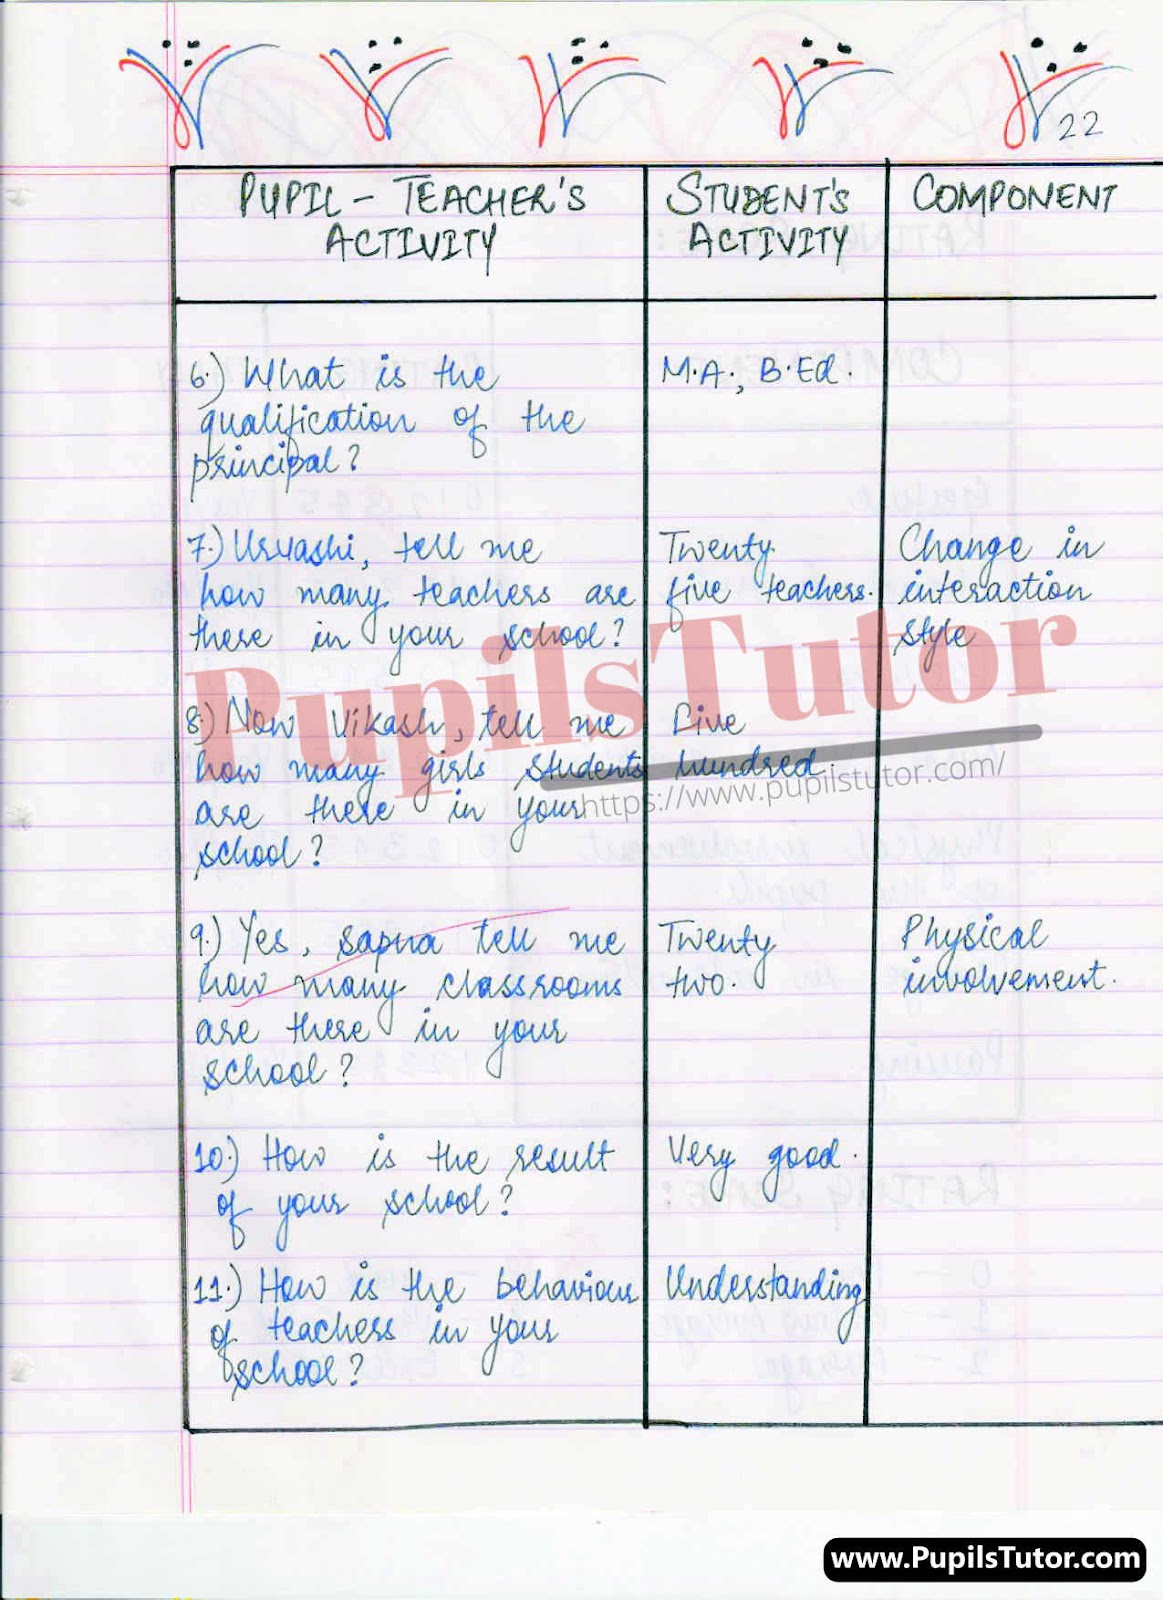 22
PUPIL - TEACHER'S
ACTIVITY
STUDENT'S
ACTIVITY
COMPONENT
6.) What is the
qualification of the
principal?
M.A., B.Ed.
7.) Urvashi, tell me
how many teachers are
there in your school?
Twenty
five teachers.
Change in
interaction
style
8.) Now Vikash, tell me
how many girls students
are there in your
school?
Five
hundred.
9.) Yes, sapna tell me
how many classrooms
are there in your
school?
Twenty
two.
Physical
involvement.
10.) How is the result
of your school?
Very good.
11.) How is the behaviour
of teachers in your
school?
Understanding
PupilsTutor
https://www.pupilstutor.com/
www.PupilsTutor.com